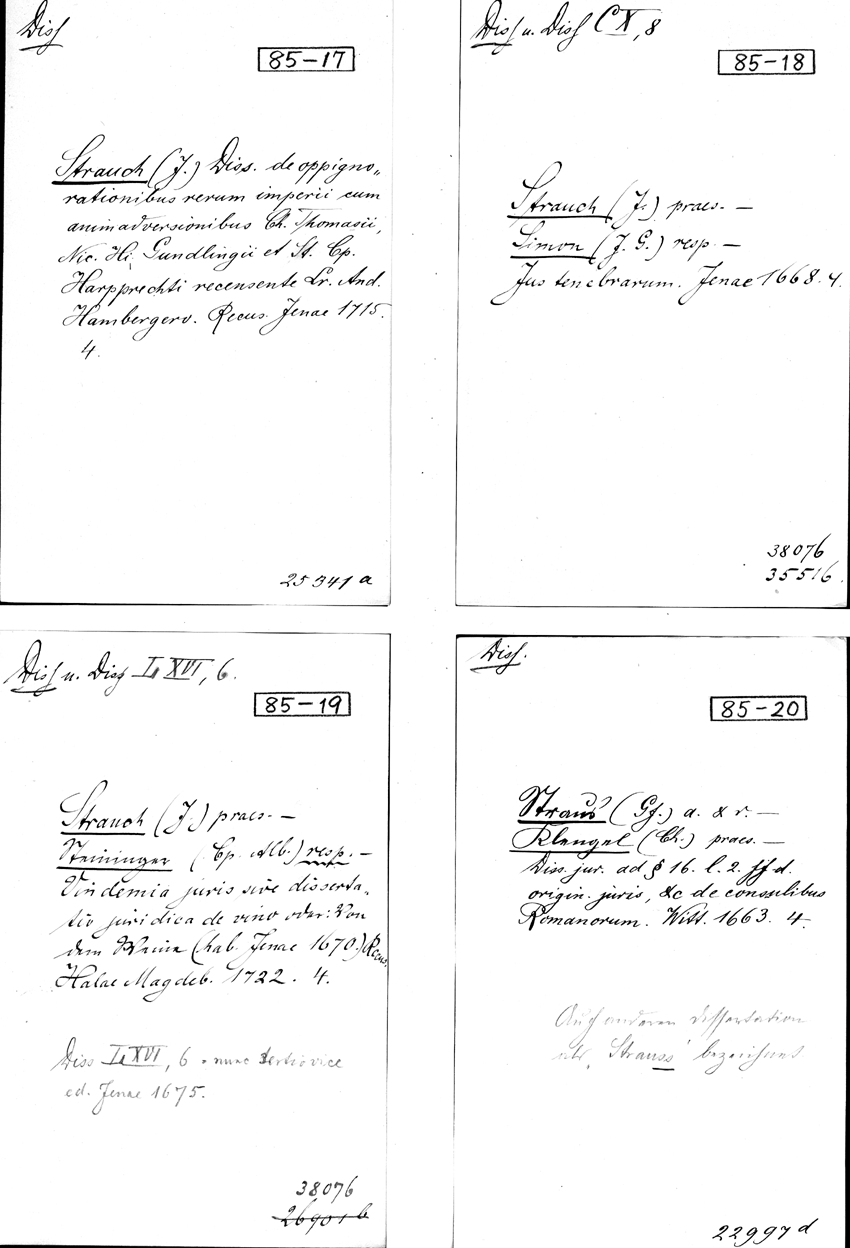 Diss
85-17
Strauch (J.) Diss. de oppigno„
rationibus rerum imperii cum
animadversionibus Ch. Thomasii,
Nic. Hi. Gundlingii et St. Cp.
Harpprechti recensente Lr. And.
Hambergero. Recus. Jenae 1715.
4.
25341 a
Diss u. Diss CX, 8
85-18
Strauch (J.) praes. —
Simon (J. G.) resp. —
Jus tenebrarum. Jenae 1668. 4.
38076
35516.
Diss u. Diss LXVI, 6.
85-19
Strauch (J.) praes. —
Steininger (Cp. Alb.) resp. —
Vindemia juris sive disserta„
tio juridica de vino oder: Von
dem Weine (hab. Jenae 1670.) Recus.
Halae Magdeb. 1722. 4.
Diss LXVI, 6 = nunc tertia vice
ed. Jenae 1675.
38076
26901 b
Diss.
85-20
Straus (Gf.) a. & r. —
Klengel (Ch.) praes. —
Diss. jur. ad § 16. l. 2. ff d.
origin. juris, &c de consulibus
Romanorum. Witt. 1663. 4.
Auf anderen Dissertation
als „Strauss" bezeichnet
22997 d